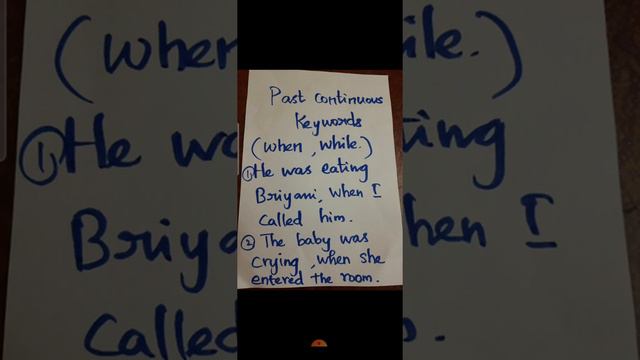 Past continuous
Keywords
(when, while.)
① He was eating
Briyani, when I
called him.
② The baby was
crying, when she
entered the room.